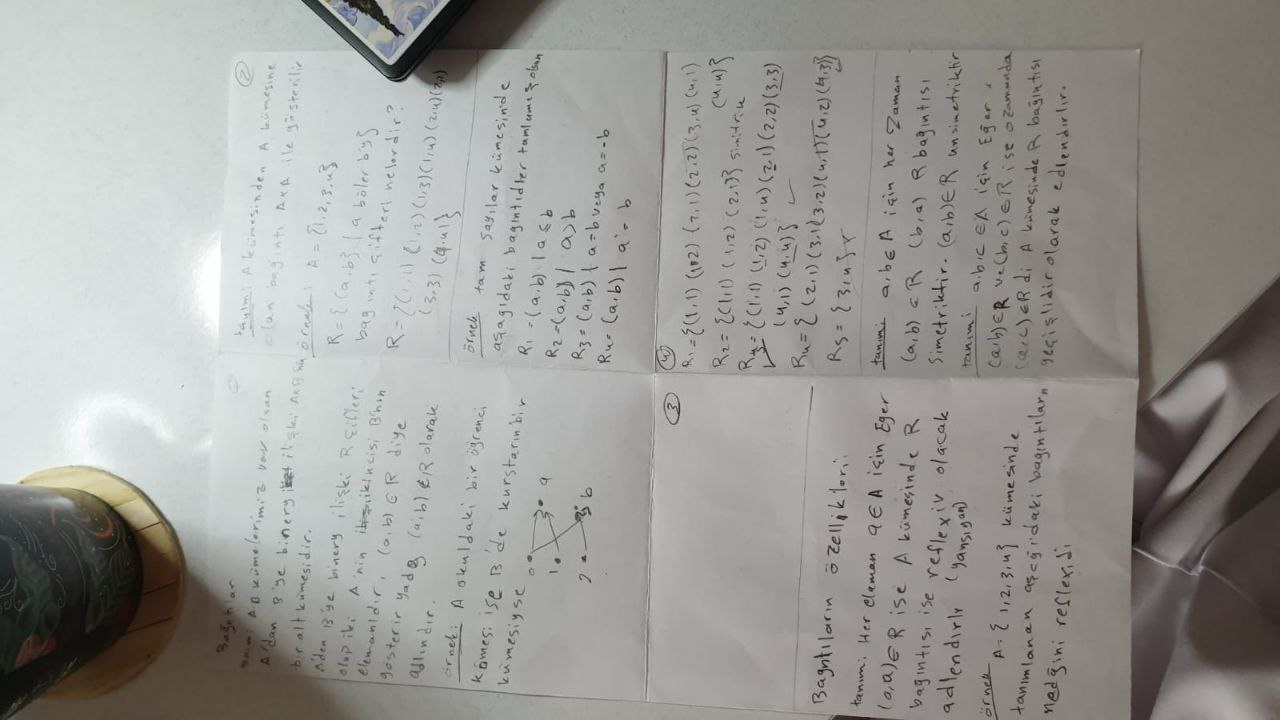 Bağıntılar
①
tanım: A,B kümelerimiz var olsun
A'dan B'ye binery ilişki AxB'nin
bir alt kümesidir.
A'den B'ye binery ilişki R çifleri
olup iki A'nin ikincisi B'nin
elemanldır, (a,b) ∈ R diye
gösterir yada (a,b) ∉ R olarak
adlındır.
örnek: A okuldaki bir öğrenci
kümesi ise B'de kurstarın bir
kümesiyse
0 a
1
2 b
②
tayım: A kümesinden A kümesine
olan bağıntı AxA ile gösterilir
örnek: A = {1,2,3,4}
R = { (a,b} | a böler b'y}
bağıntı çifteri nelerdir?
R = {(1,1) (1,2) (1,3) (1,4) (2,4) (2,2)
(3,3) (4,4)}
örnek tam sayılar kümesinde
aşagıdaki bagıntıdler tamlamış olsun
R1 = (a,b) | a ≤ b
R2 = (a,b) | a > b
R3 = (a,b) | a=b veya a=-b
R4 = (a,b) | a = b
③
Bağıntıların özellikleri:
tanım: Her elaman a∈A için Eğer
(a,a) ∈ R ise A kümesinde R
bagıntısı ise reflexiv olacak
adlendırlı (yansıyan)
örnek A = {1,2,3,4} kümesinde
tanımlanan aşağıdaki bagıntıların
nedğini reflexidi
④
R1 = {(1,1) (1,2) (2,1) (2,2) (3,4) (4,1)
(4,4)}
R2 = {(1,1) (1,2) (2,1)} simitrik
R3 = {(1,1) (1,2) (1,4) (2,1) (2,2) (3,3)
✓ (4,1) (4,4)} ✓
R4 = { (2,1) (3,1) (3,2) (4,1) (4,2) (4,3)}
R5 = {3,4} x
tanım: a,b∈A için her zaman
(a,b) ∈ R (b,a) R bagıntısı
Simetriktir. (a,b)∈R unsimetriktir
tanım: a,b,c ∈A için Eğer
(a,b)∈R ve (b,c) ∈ R ise o zamanda
(a,c) ∈R di A kümesinde R bagıntısı
geçişlidir olarak edlendırlır.